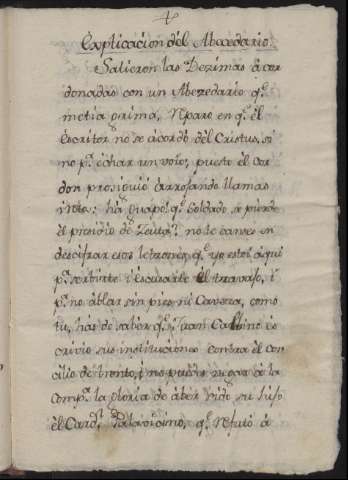 Explicacion del Abecedario.
Salieron las Dezimas acor
donadas con un Abezedario q.e
metia prima, Reparo en q.e el
Escritor no se acordó del Cristus, si
no p.a echar un voto, puesto el cor
don prosiguió arrojando llamas
q.e Soldado se pierde
el presidio de Zeuta, no te canses in
descifrar esos letrones q.e yo estoi aqui
p.a serbirte i escusarte el travajo, i
p.a no ablar sin pies ni Caveza, como
tu, has de saber q.e Juan Calbino es
crivio sus instituciones contra el con
cilio de trento, i no puedes negar a la
Comp.a la gloria de aber sido su hijo
el Card.l Palavicino, q.e refutó á